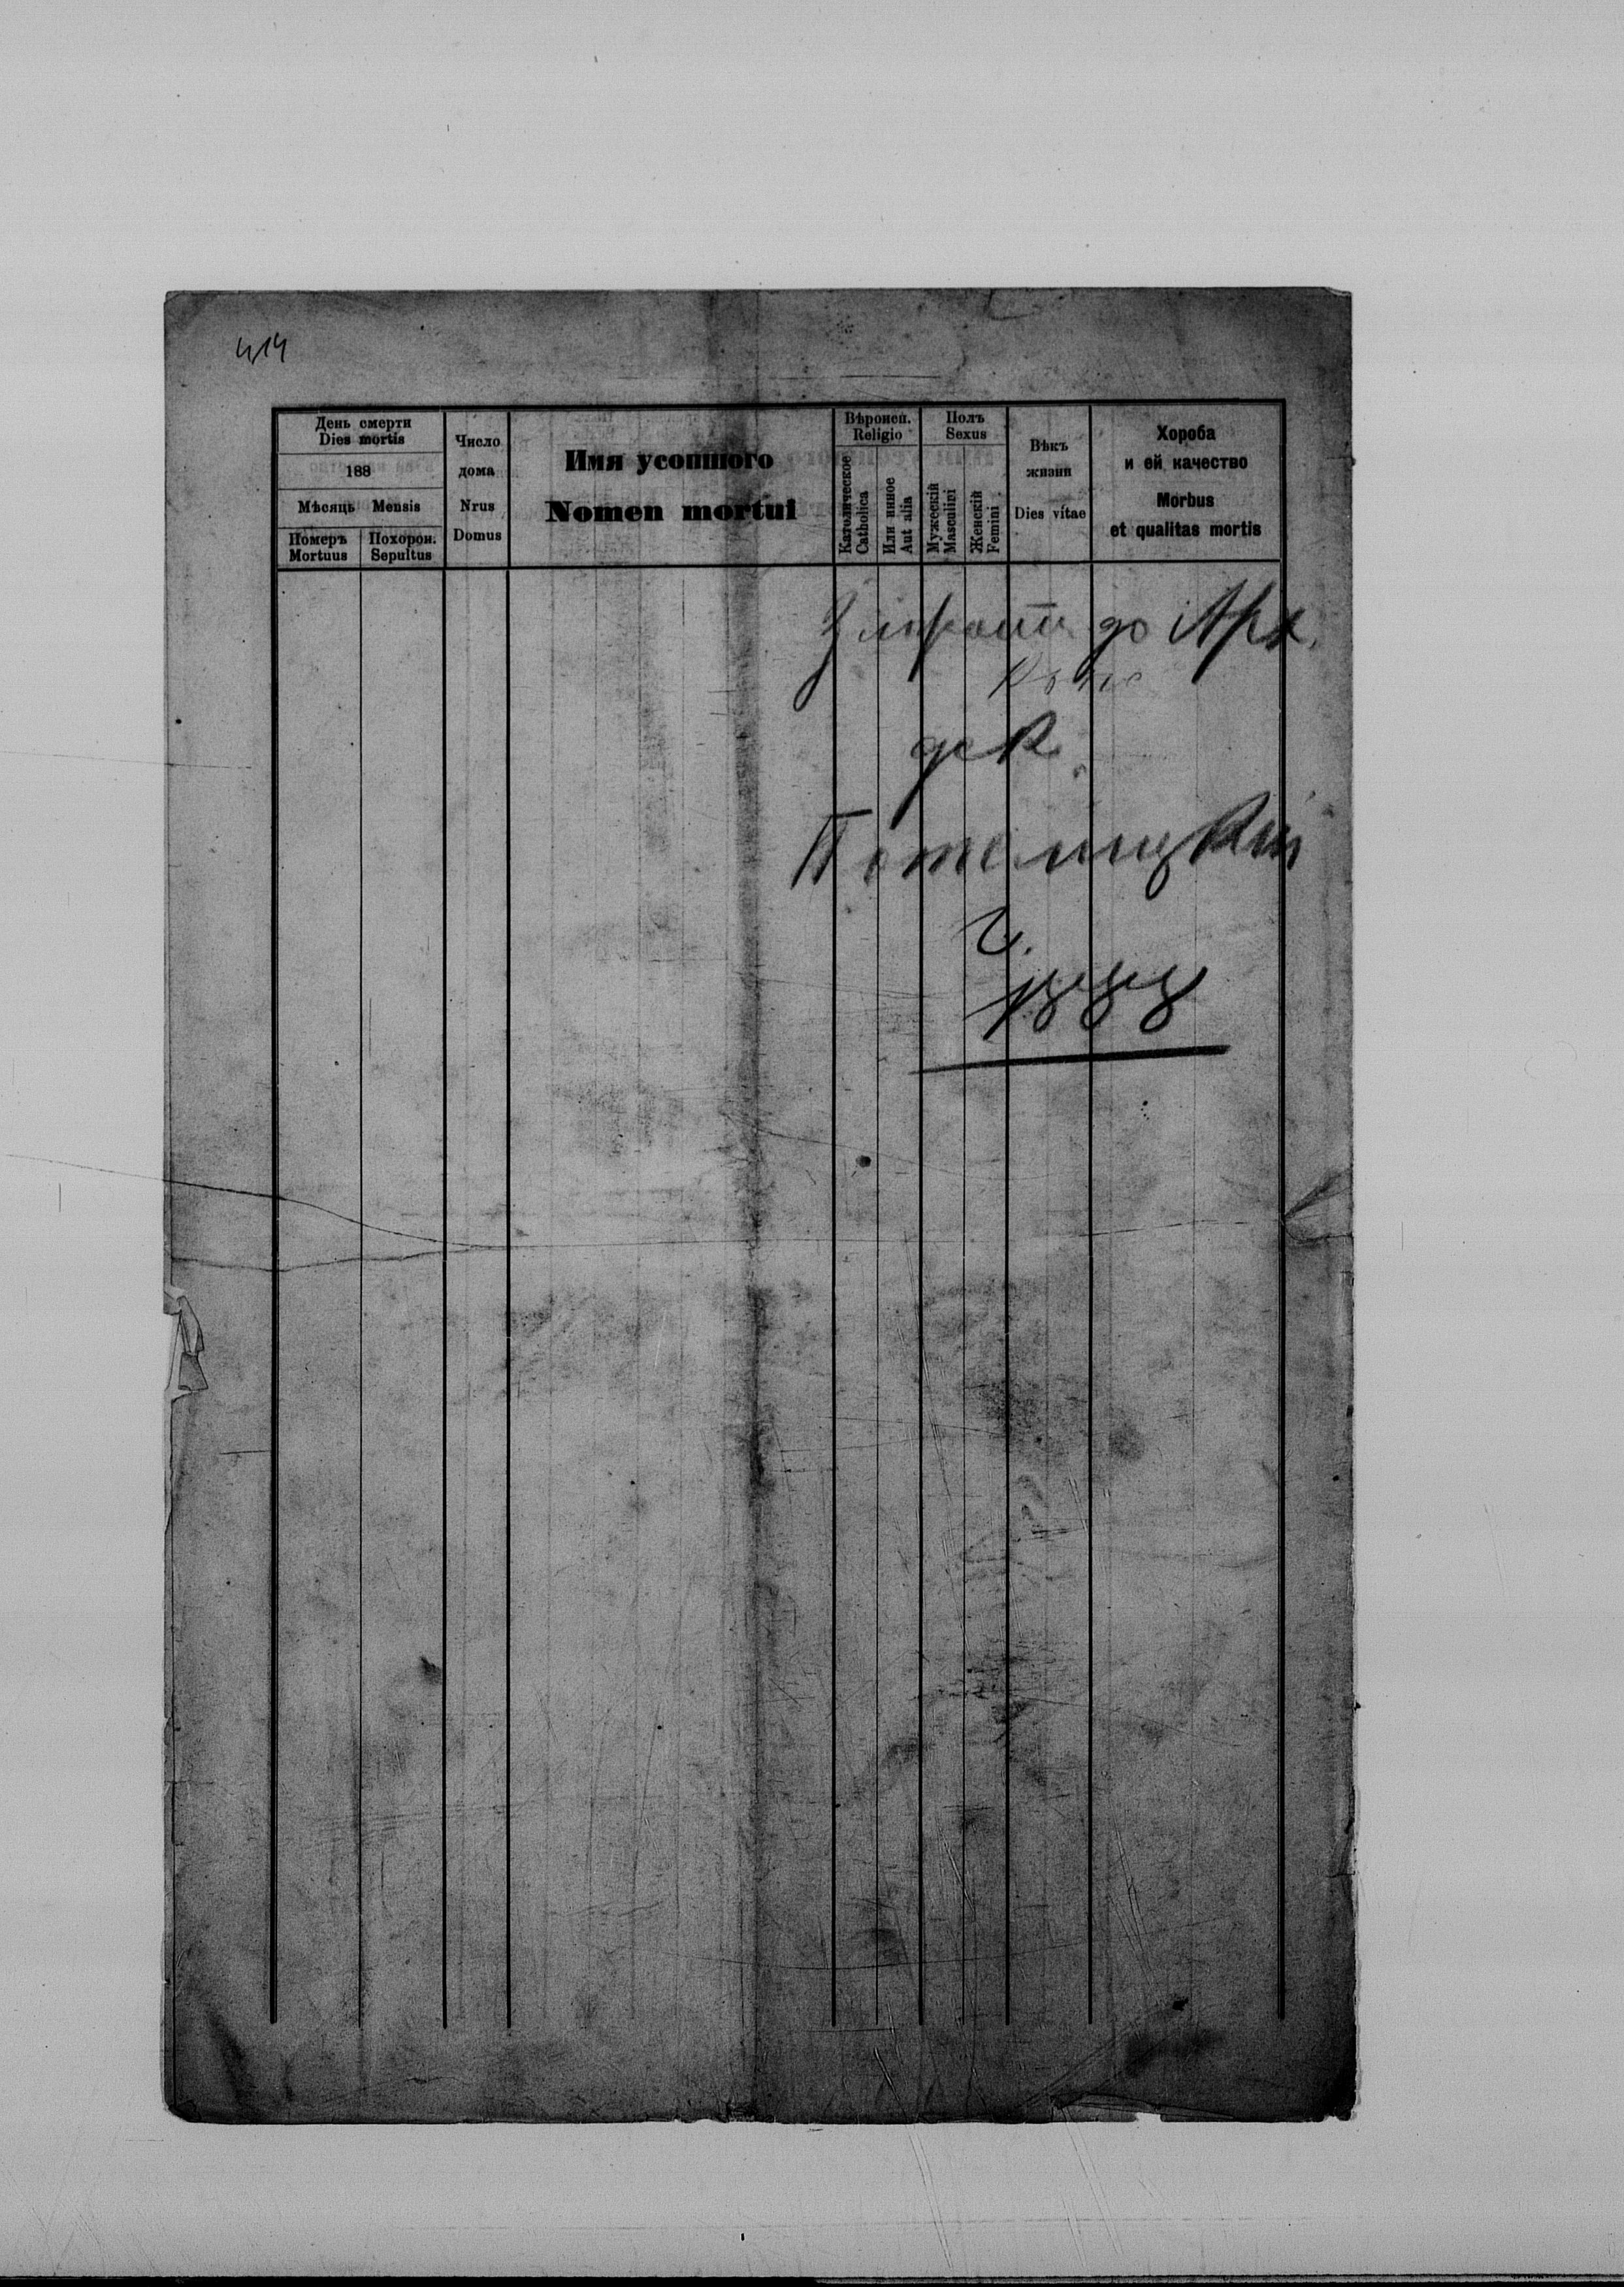 414
День смерти
Dies mortis
188
Мѣсяць Mensis
Померъ Похорон.
Mortuus Sepultus
Число
дома
Nrus
Domus
Имя усопшого
Nomen mortui
Вѣроисп.
Religio
Католическое
Catholica
Или инное
Aut alia
Полъ
Sexus
Мужескій
Masculini
Женскій
Femini
Вѣкъ
жизни
Dies vitae
Хороба
и ей качество
Morbus
et qualitas mortis
до Арх.
дек.
Потелицкій
1888